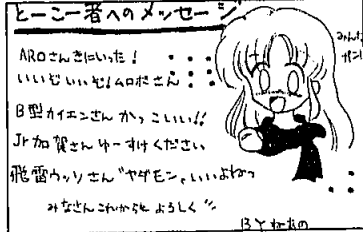 とーこー者へのメッセージ
AROさんきにいった!
いいぞいいぞ!ムロボさん
B型カイエンさんかっこいい!!
Jr加賀さんゆーすけください
飛雷ウッソさん"ヤダモン"いいよねっ
みなさんこれからもよろしく
みんな